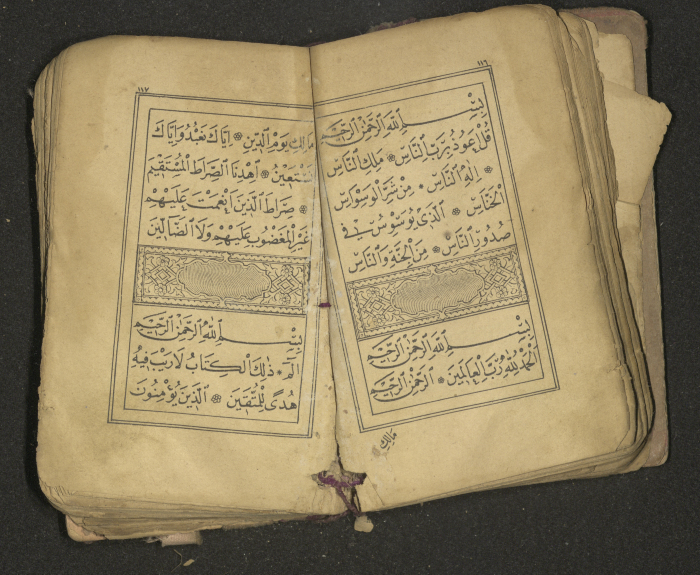 ١١٦
بِسْمِ ٱللّٰهِ ٱلرَّحْمٰنِ ٱلرَّحِيمِ
قُلْ اَعُوذُ بِرَبِّ ٱلنَّاسِ * مَلِكِ ٱلنَّاسِ
* اِلٰهِ ٱلنَّاسِ * مِنْ شَرِّ ٱلْوَسْوَاسِ
ٱلْخَنَّاسِ * ٱلَّذِي يُوَسْوِسُ فِي
صُدُورِ ٱلنَّاسِ * مِنَ ٱلْجِنَّةِ وَٱلنَّاسِ
بِسْمِ ٱللّٰهِ ٱلرَّحْمٰنِ ٱلرَّحِيمِ
ٱلْحَمْدُ لِلّٰهِ رَبِّ ٱلْعَالَمِينَ * ٱلرَّحْمٰنِ ٱلرَّحِيمِ
مَالِكِ
١١٧
مَالِكِ يَوْمِ ٱلدِّينِ * اِيَّاكَ نَعْبُدُ وَاِيَّاكَ
نَسْتَعِينُ * اِهْدِنَا ٱلصِّرَاطَ ٱلْمُسْتَقِيمَ
* صِرَاطَ ٱلَّذِينَ اَنْعَمْتَ عَلَيْهِمْ
غَيْرِ ٱلْمَغْضُوبِ عَلَيْهِمْ وَلَا ٱلضَّالِّينَ
بِسْمِ ٱللّٰهِ ٱلرَّحْمٰنِ ٱلرَّحِيمِ
الٓمٓ * ذٰلِكَ ٱلْكِتَابُ لَا رَيْبَ فِيهِ
هُدًى لِلْمُتَّقِينَ * ٱلَّذِينَ يُؤْمِنُونَ